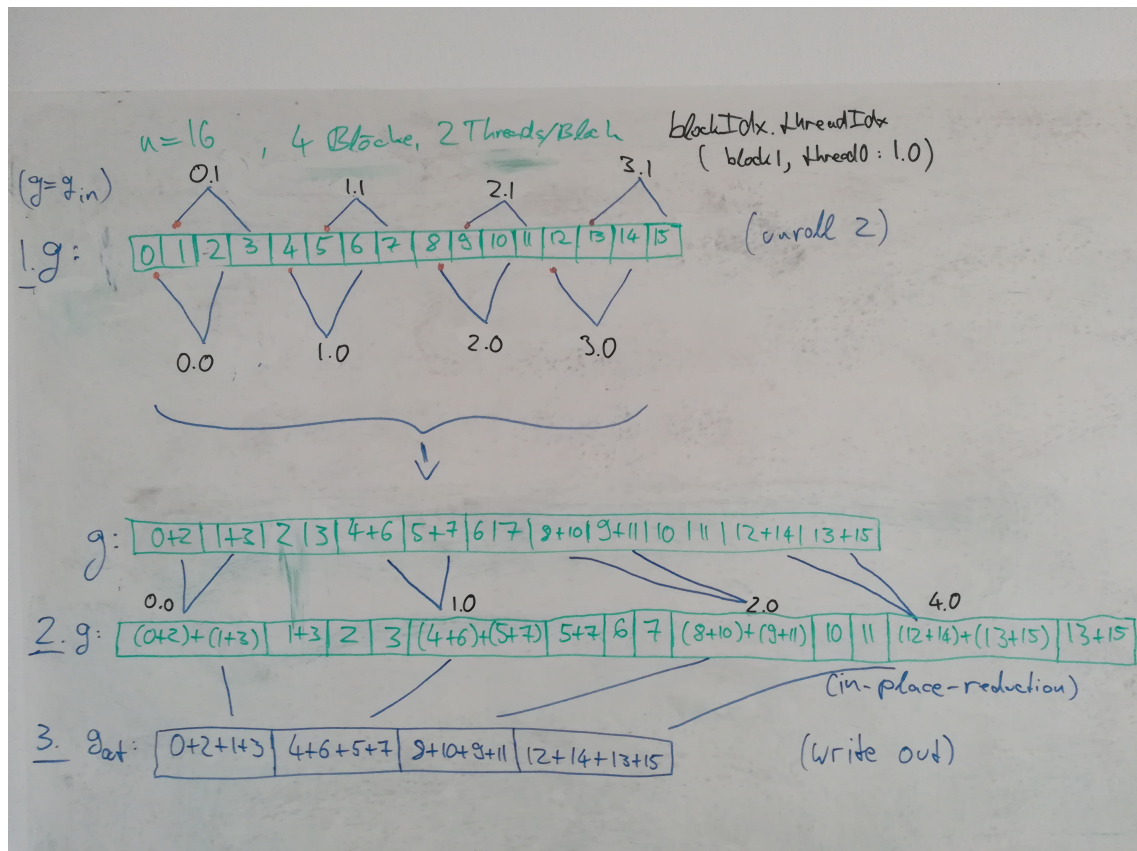 n=16 , 4 Blöcke, 2 Threads/Block
blockIdx.threadIdx
( block1, thread0 : 1.0)
(g=g_in)
0.1 1.1 2.1 3.1
1. g: 0 1 2 3 4 5 6 7 8 9 10 11 12 13 14 15
(unroll 2)
0.0 1.0 2.0 3.0
g: 0+2 | 1+3 | 2 | 3 | 4+6 | 5+7 | 6 | 7 | 8+10 | 9+11 | 10 | 11 | 12+14 | 13+15
0.0 1.0 2.0 4.0
2. g: (0+2)+(1+3) | 1+3 | 2 | 3 | (4+6)+(5+7) | 5+7 | 6 | 7 | (8+10)+(9+11) | 10 | 11 | (12+14)+(13+15) | 13+15
(in-place-reduction)
3. g_out: 0+2+1+3 | 4+6+5+7 | 8+10+9+11 | 12+14+13+15
(write out)